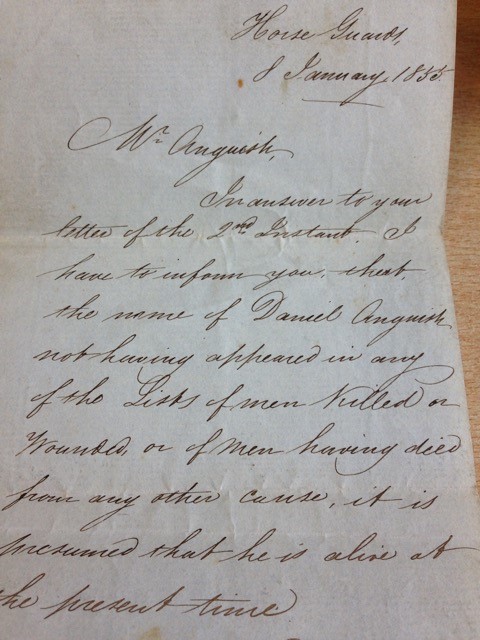 Horse Guards,
8 January, 1855.
Mr Anguish,
In answer to your
letter of the 2nd Instant, I
have to inform you, that,
the name of Daniel Anguish
not having appeared in any
of the Lists of men Killed or
Wounded, or of Men having died
from any other cause, it is
presumed that he is alive at
the present time